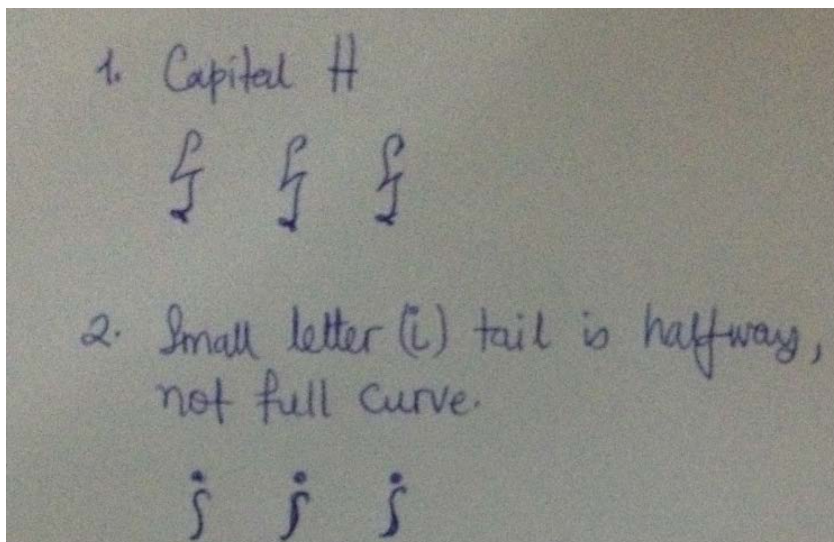 1. Capital H
2. Small letter (i) tail is halfway,
not full curve.